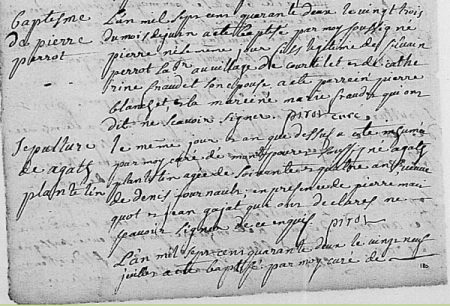 Baptesme
de pierre
perrot
L'an mil sept cens quarante deux le vingt trois
du mois de juin a eté baptisé par moy soussigné
pierre né le meme jour fils legitime de
perrot la au village de et de cathe
rine son epouse, a eté perrein pierre
blanchet, et la mareine marie qui ont
dit ne scavoir signer. curé
Sepulture
de agath
plantetin
le meme jour et an que dessus a eté inhumée
par moy curé de soussigné agath
plantetin agée de soixante et quatre ans
de denis fournault, en presence de pierre
quot et jean gajat qui ont declarés ne
scavoir signer de ce enquis
L'an mil sept cens quarante deux le vingt neuf
juillet a eté baptisé par moy curé de